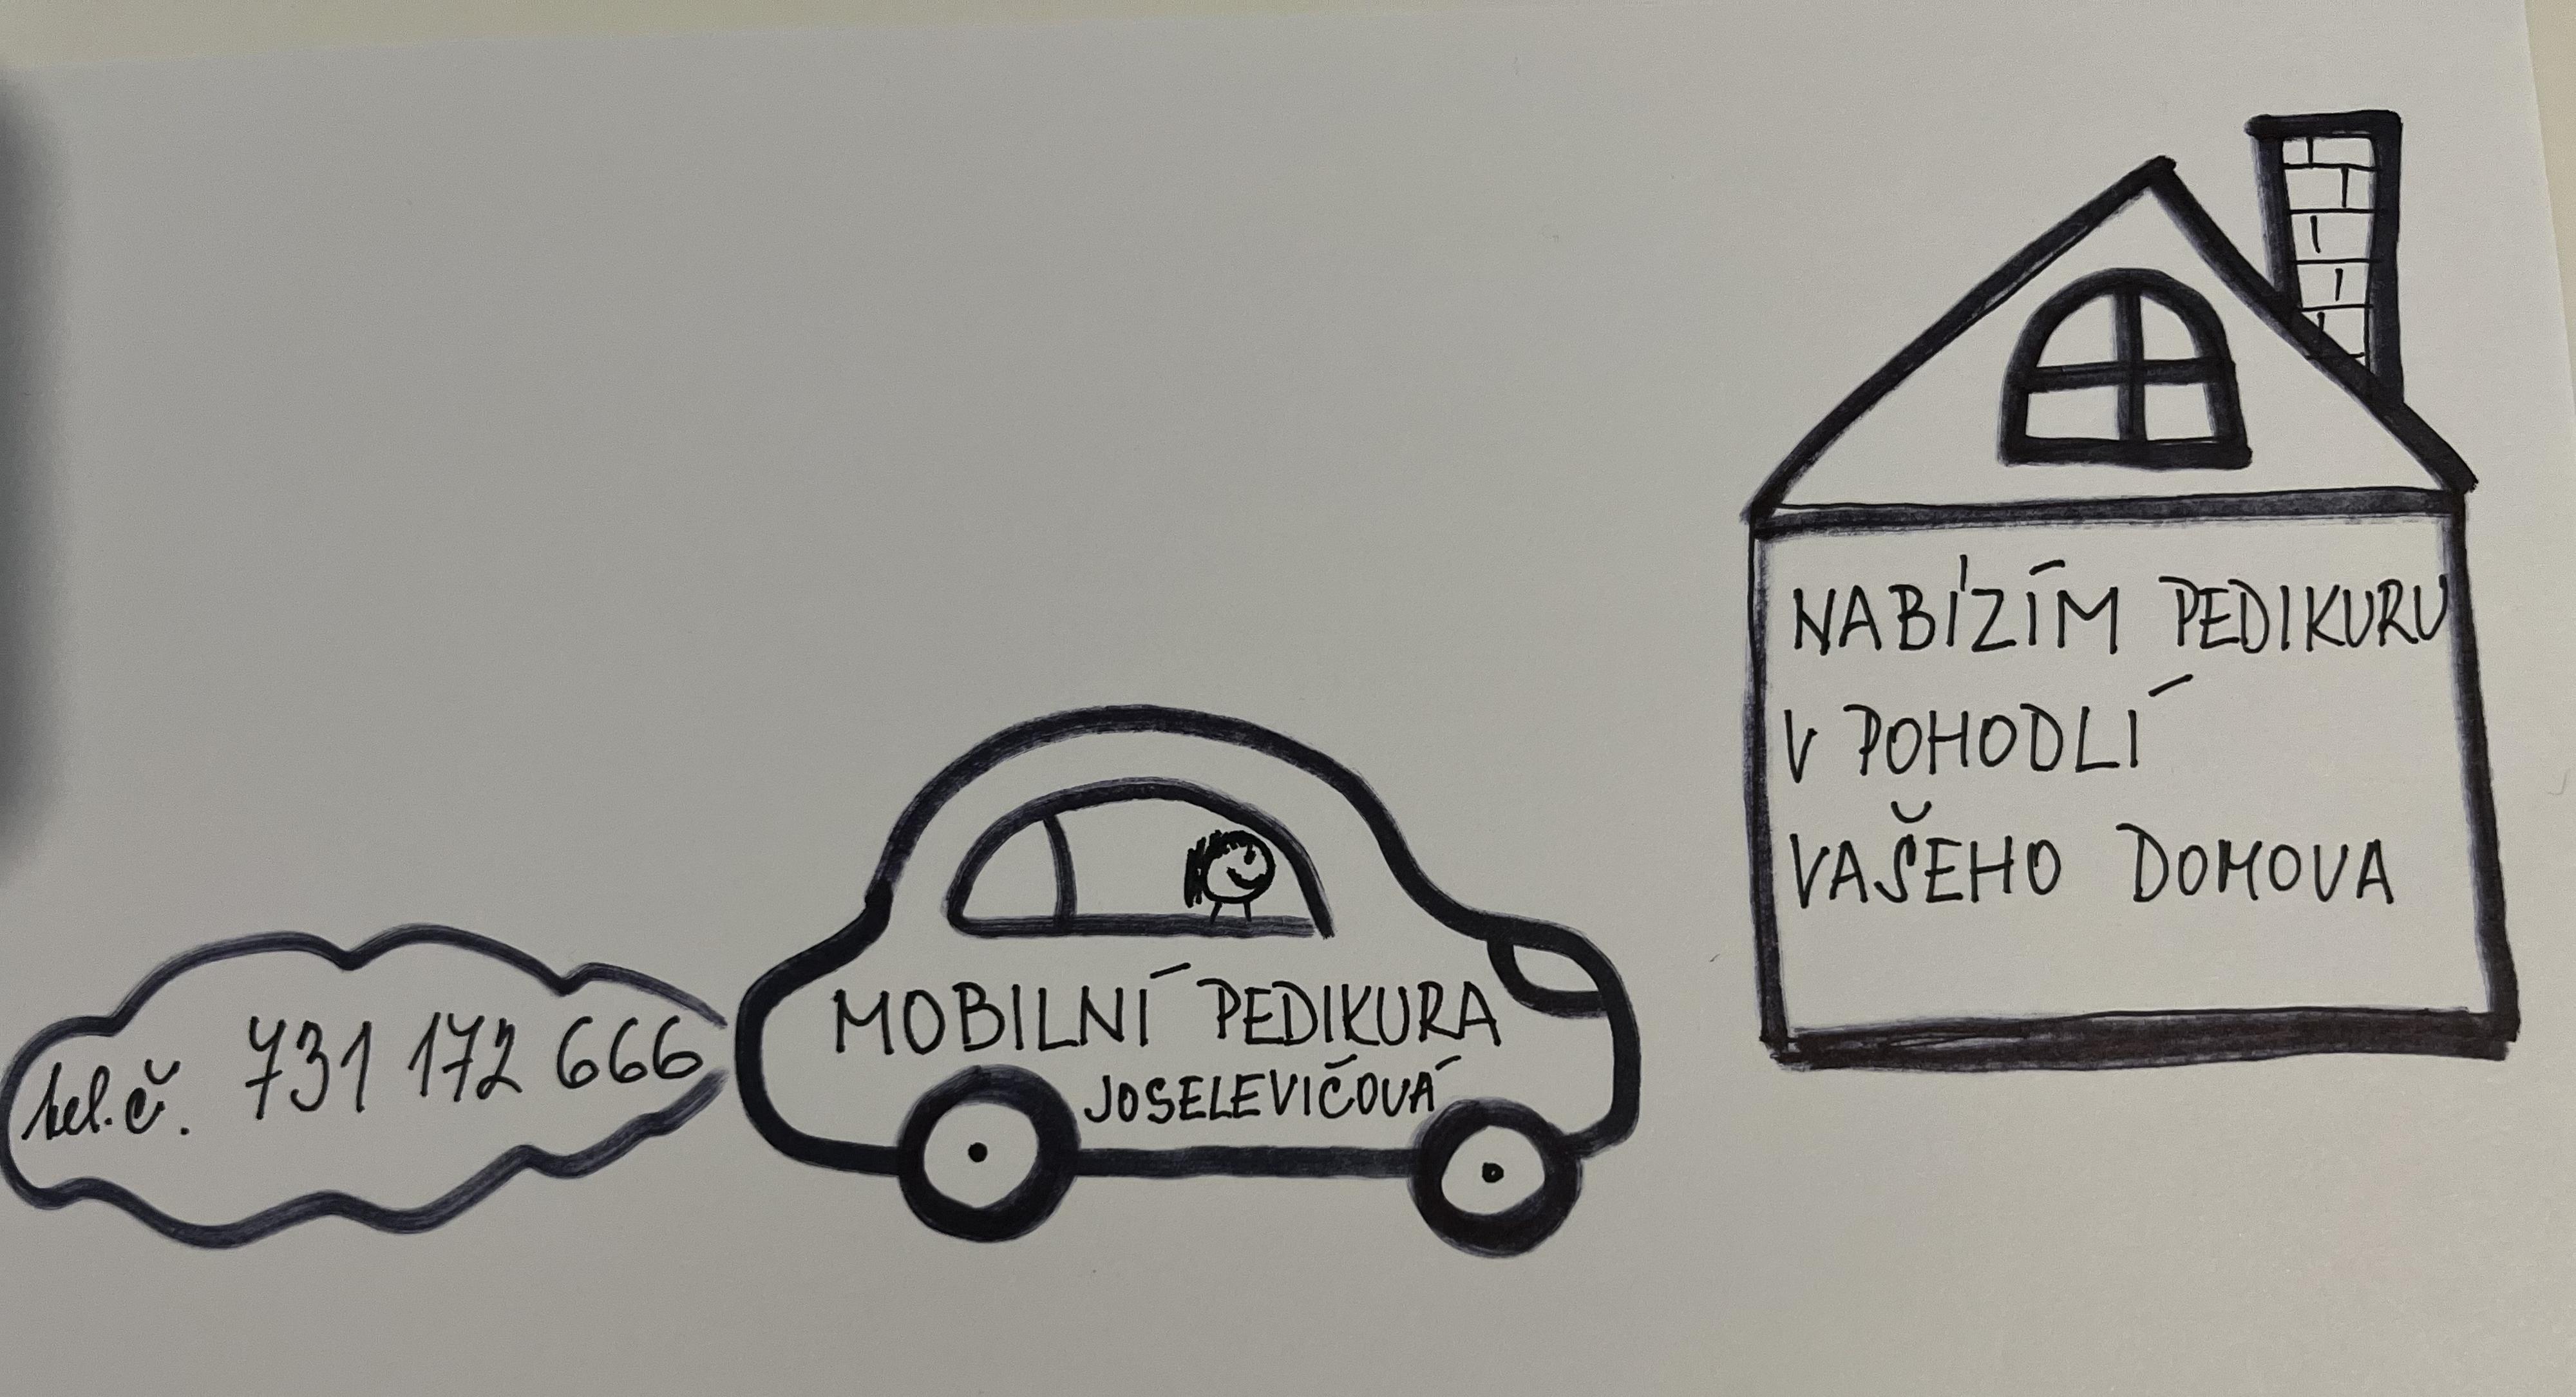 tel.č. 731 172 666
MOBILNÍ PEDIKURA
JOSELEVIČOVÁ
NABÍZÍM PEDIKURU
V POHODLÍ
VAŠEHO DOMOVA